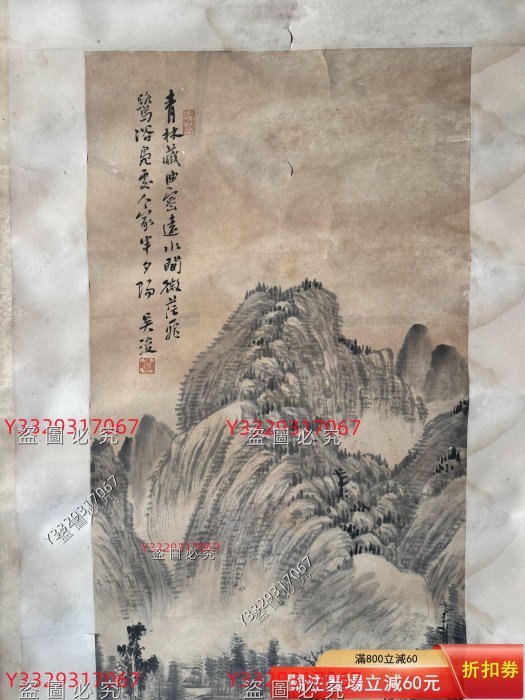 青林藏曲密遠水間微茫飛
鷺浴鳧處人家半夕陽 吳浚
Y3329317067
盜圖必究
Y3329317067
盜圖必究
Y3329317067
盜圖必究
Y3329317067
盜圖必究
Y3329317067
盜圖必究
Y3329317067
盜圖必究
Y3329317067
盜圖必究
滿800立減60
關注賣場立減60元
折扣券